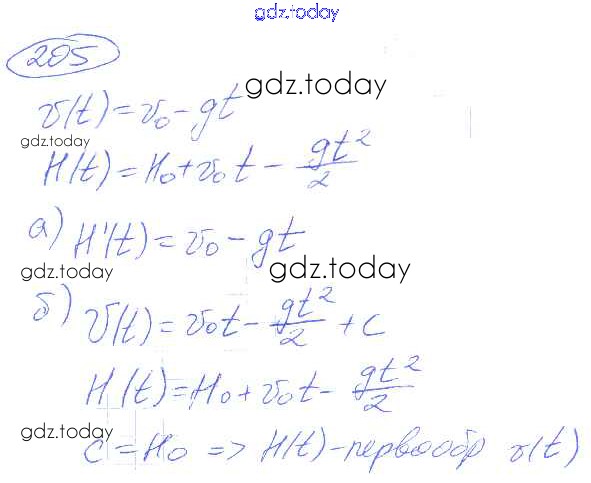 gdz.today
205
v(t) = v₀ - gt
gdz.today
gdz.today
H(t) = H₀ + v₀t - gt²/2
а) H'(t) = v₀ - gt
gdz.today
gdz.today
б) V(t) = v₀t - gt²/2 + C
H(t) = H₀ + v₀t - gt²/2
gdz.today
gdz.today
C = H₀ => H(t) - первообр v(t)